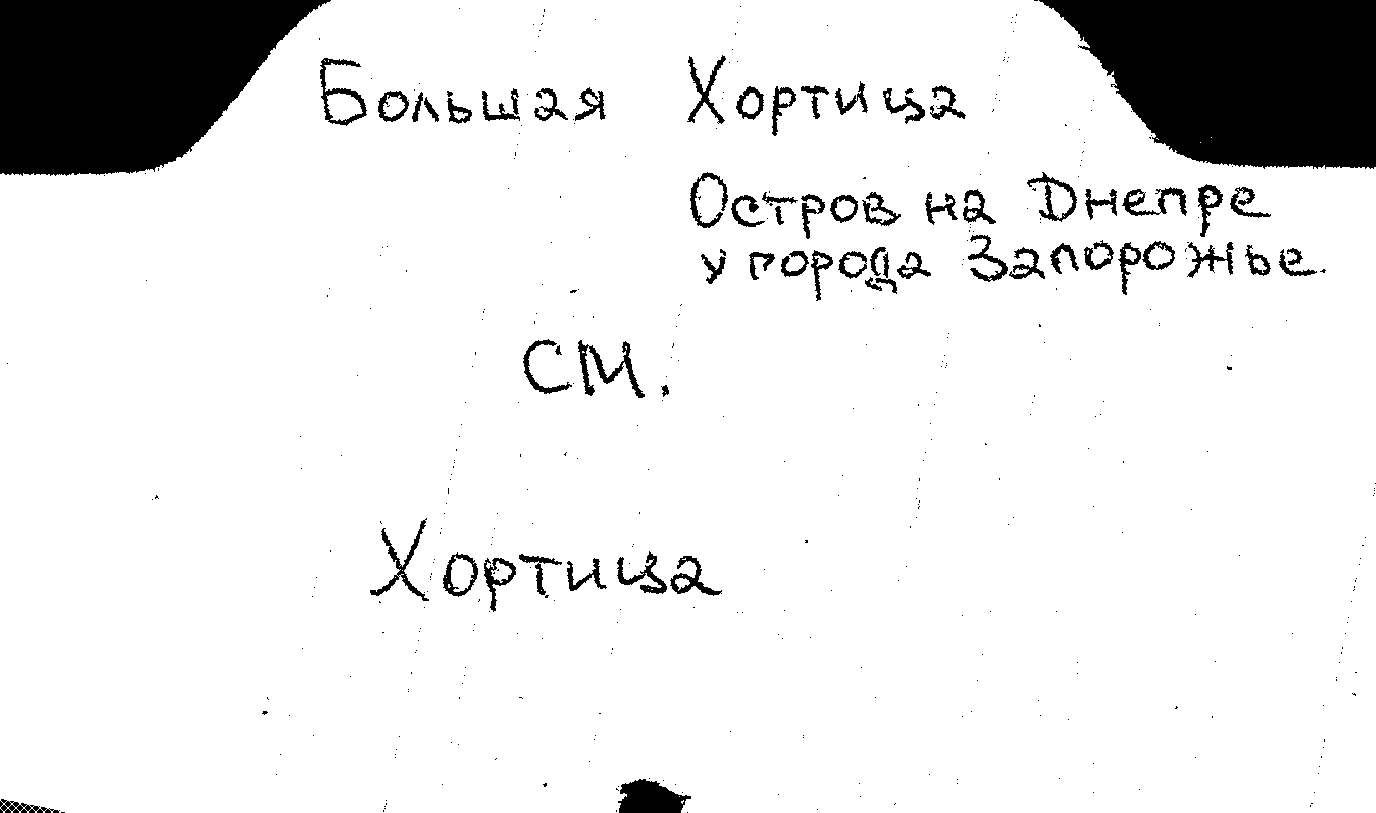 Большая Хортица
Остров на Днепре
у города Запорожье.
См.
Хортица